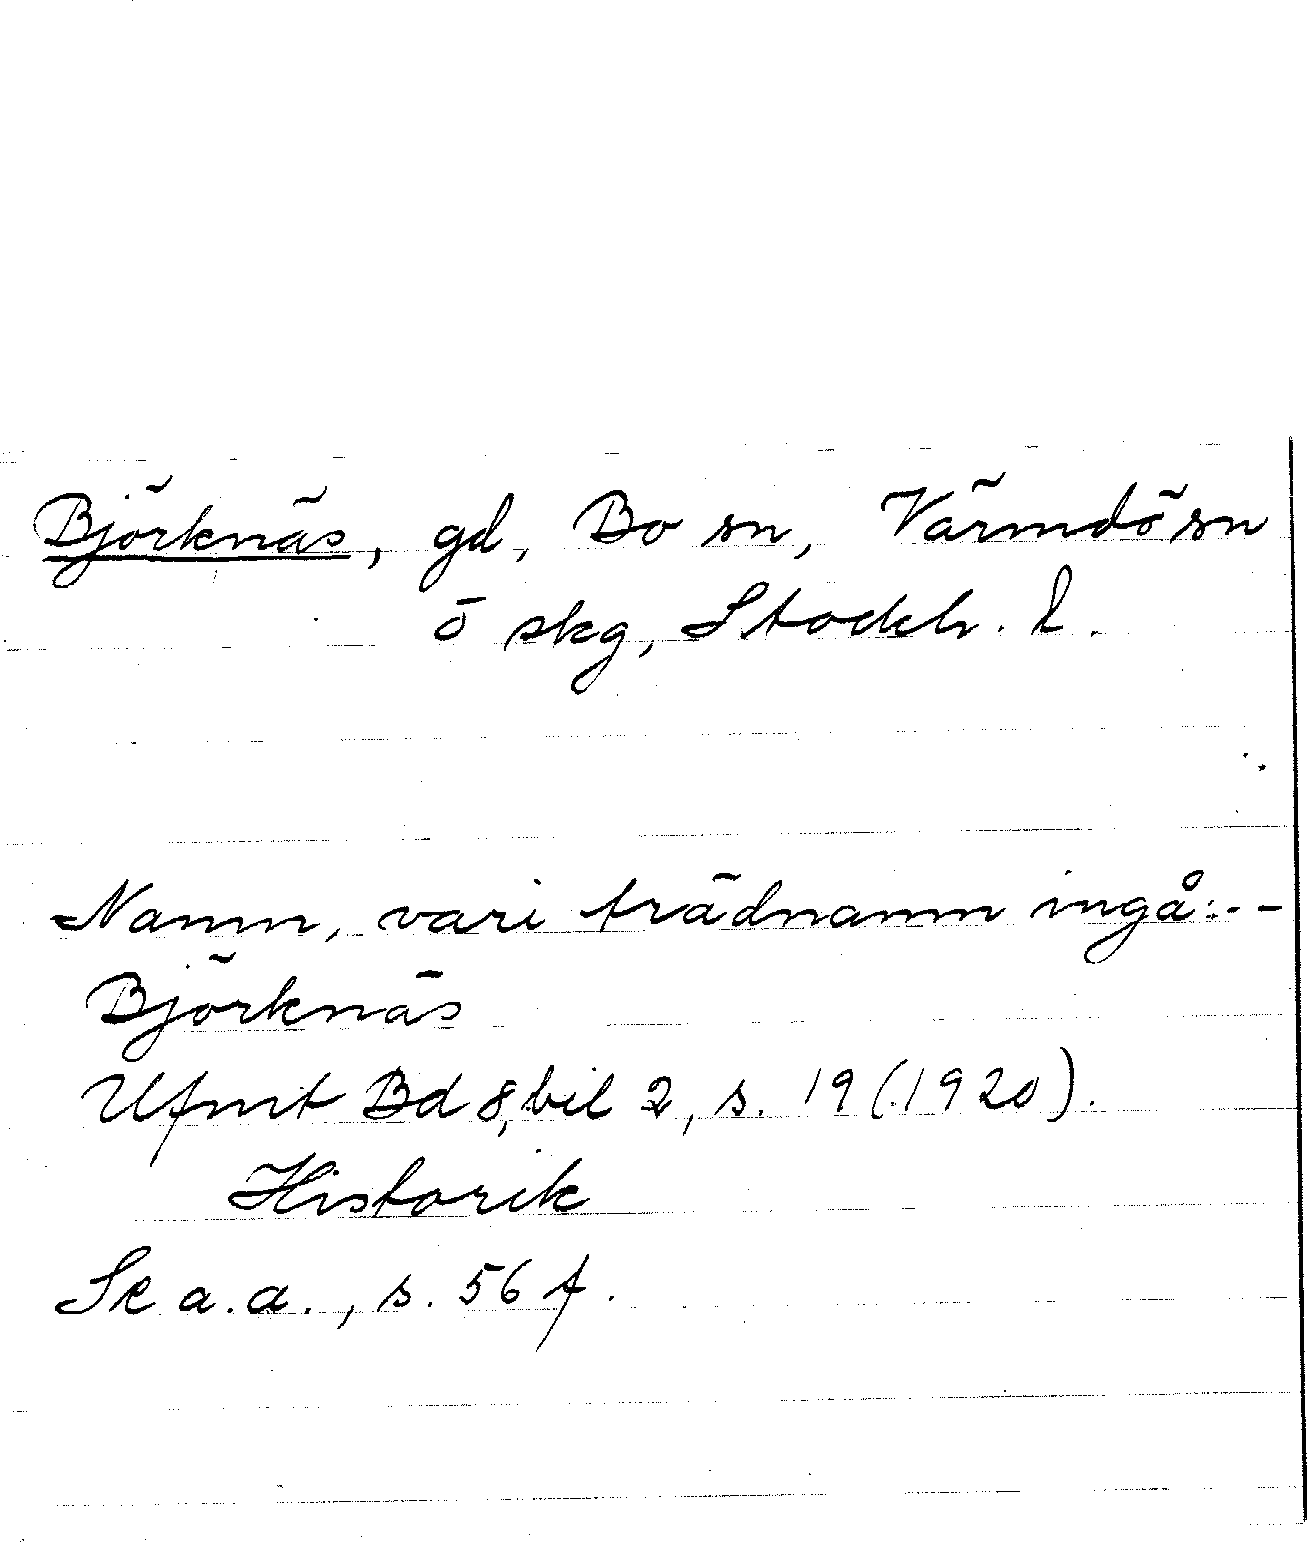 Björknäs, gd, Bo sn, Värmdö sn
ö skg, Stockh. l.
Namn, vari trädnamn ingå:.- -
Björknäs
Ufmt Bd 8, bil 2, s. 19 (1920).
Historik
Se a.a., s. 56 f.